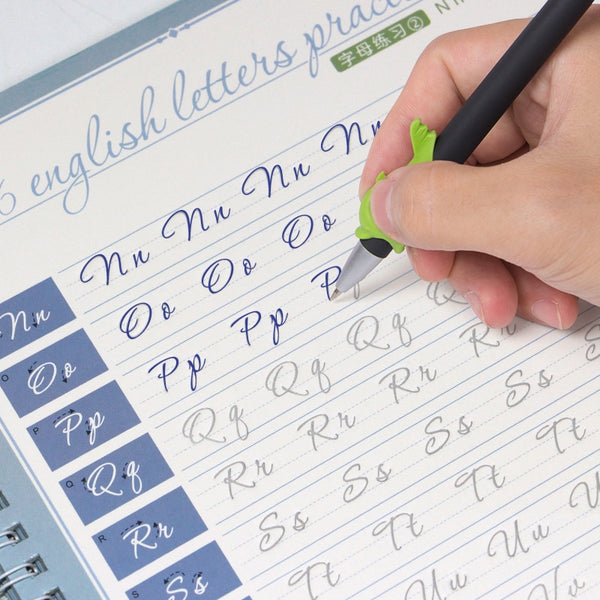 6 english letters prac
字母练习②
Nn Nn Nn Nn Nn
O Oo Oo Oo Oo
P Pp Pp Pp Pp
Q Qq Qq Qq Qq Q
R Rr Rr Rr Rr Rr
S Ss Ss Ss Ss Ss
Tt Tt Tt Tt
Uu Uu U
Vv